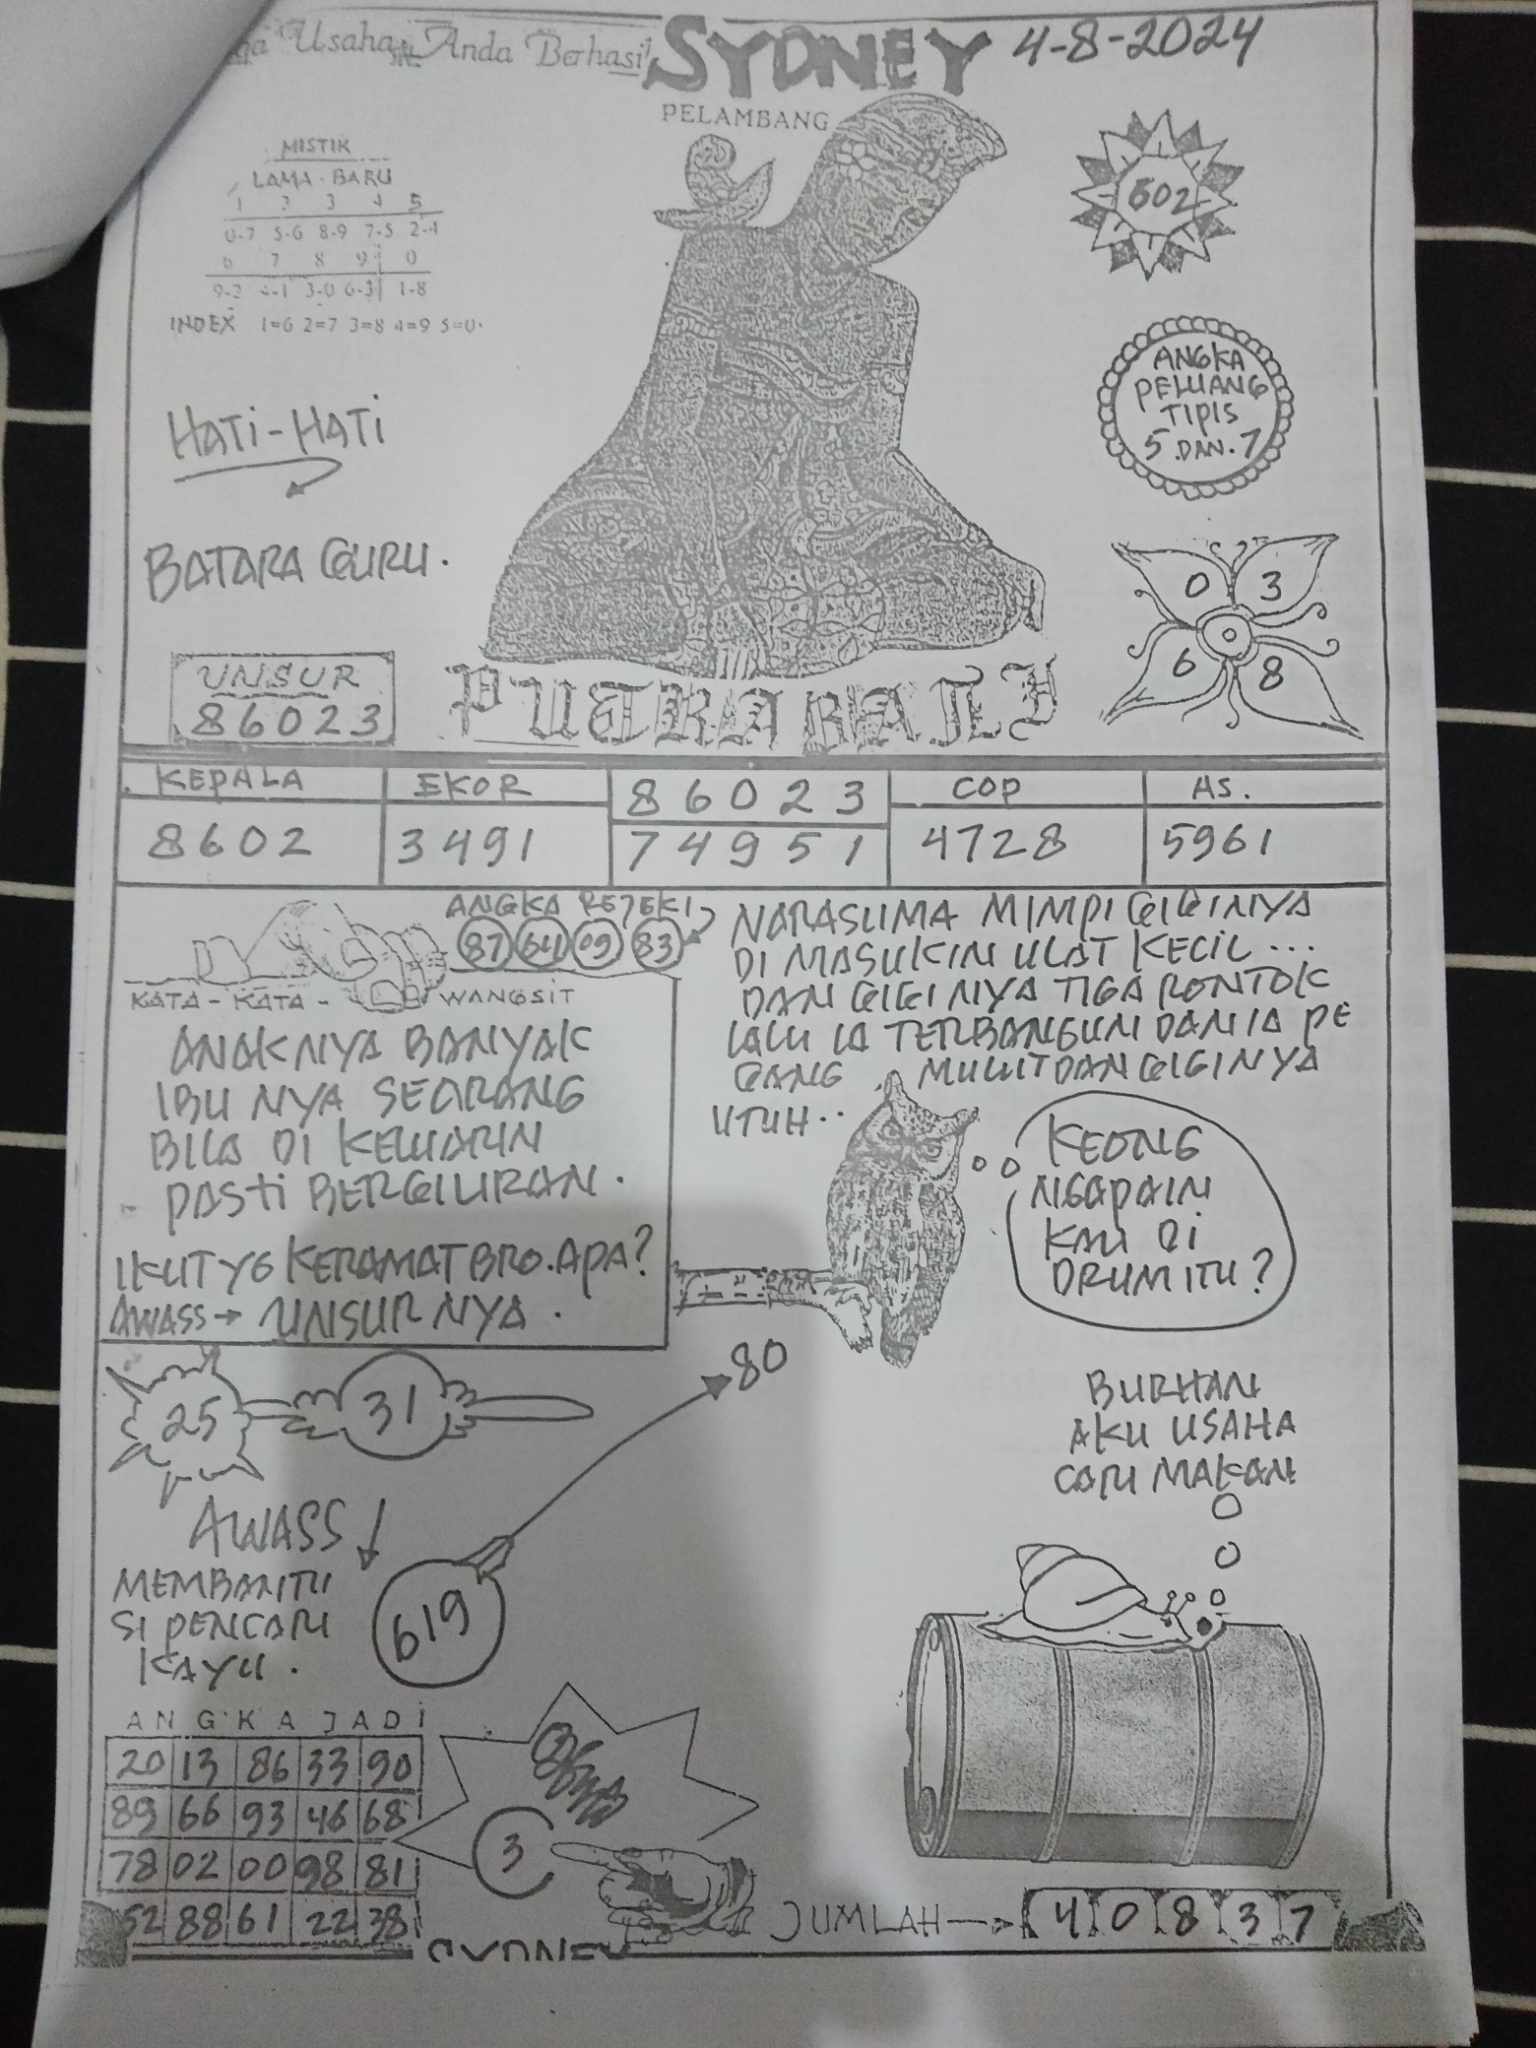 Usaha Anda Berhasil
SYDNEY 4-8-2024
PELAMBANG
MISTIK
LAMA - BARU
1 2 3 4 5
0-7 5-6 8-9 7-5 2-4
6 7 8 9 0
9-2 4-1 3-0 6-3 1-8
INDEX 1=6 2=7 3=8 4=9 5=0
602
ANGKA
PELUANG
TIPIS
5 .DAN. 7
HATI-HATI
BATARA GURU.
0 3
6 8
UNSUR
86023
PUTRA BALI
KEPALA EKOR 86023 COP AS.
8602 3491 74951 4728 5961
ANGKA REJEKI
87 64 09 83
KATA - KATA - WANGSIT
ANAKNYA BANYAK
IBU NYA SEORANG
BILA DI KELUARIN
PASTI BERGILIRAN.
IKUT YG KERAMAT BRO. APA?
AWASS → UNSURNYA.
NARASUMA MIMPI GIGINYA
DI MASUKIN ULAT KECIL ...
DAN GIGINYA TIGA RONTOK
LALU IA TERBANGUN DAN IA PE
GANG MULUT DAN GIGINYA
UTUH..
KEONG
NGAPAIN
KAU DI
DRUM ITU?
80
25 31
BURHAN
AKU USAHA
CARI MAKAN
AWASS
MEMBANTU
SI PENCARI
KAYU.
619
ANGKA JADI
20 13 86 33 90
89 66 93 46 68
78 02 00 98 81
52 88 61 22 38
3
JUMLAH → 4 0 8 3 7
SYDNEY